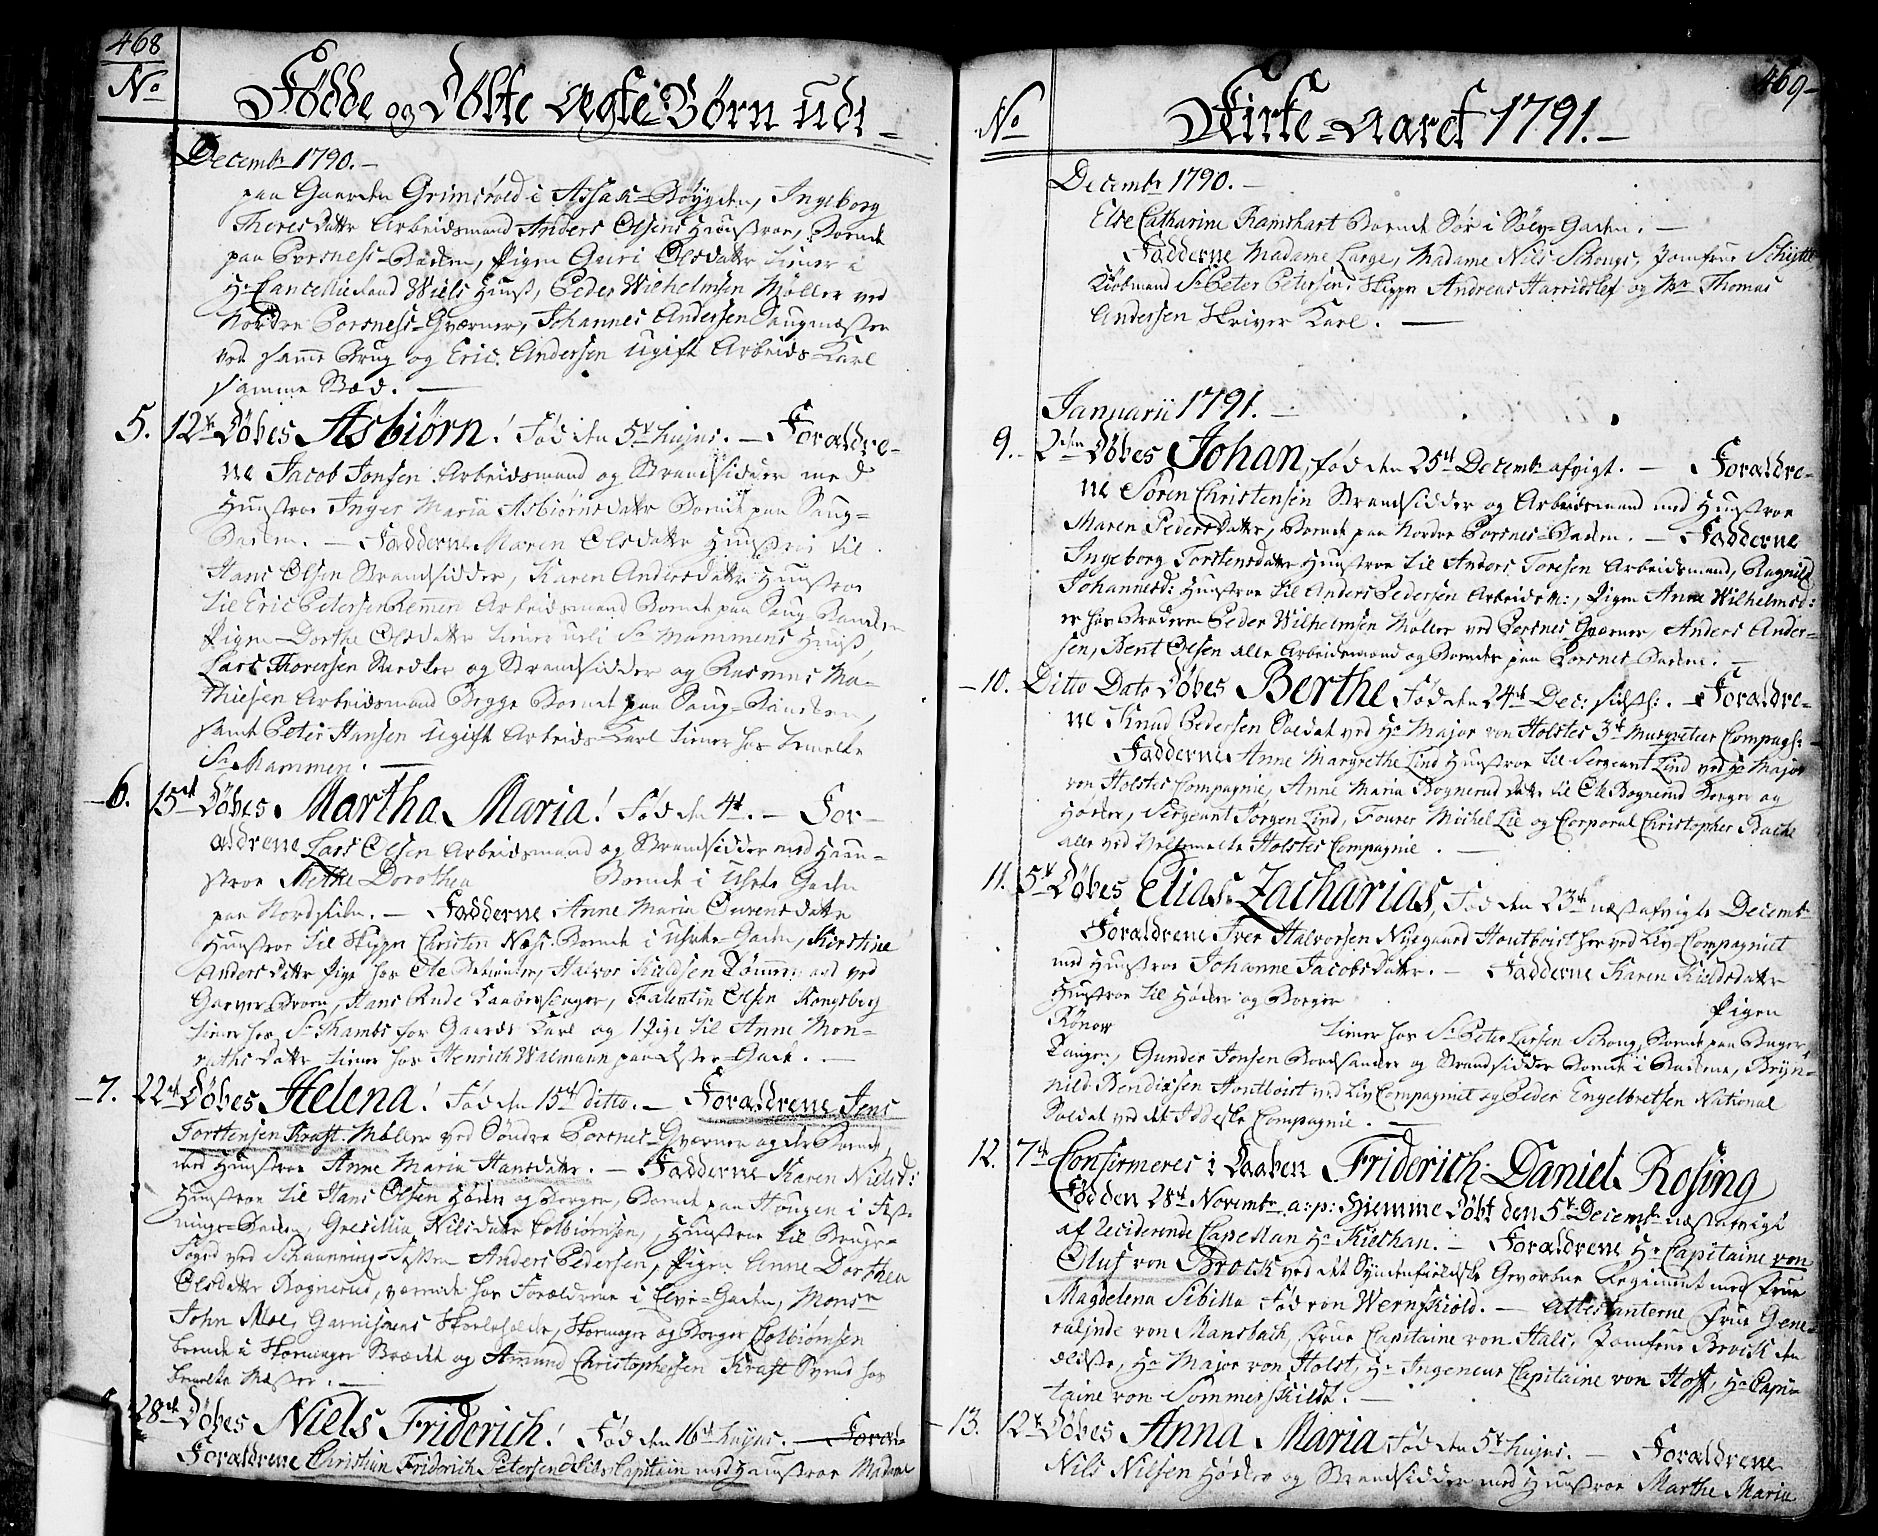 468
No
Fødde og Døbte Ægte Børn udi
Decembr 1790. –
paa Gaarden Grimsrød i Assak-Bøygden, Ingeborg
Theres datter Arbeidsmand Anders Olsens Hustroe, Boende
paa Porsnes-Bakken, Pigen Guri Olsdatter tiener i
Hr Cancellieraad Wiels Huus, Peder Wilhelmsen Møller ved
Nordre Porsness-Qværner, Johannes Andersen Saugmester
ved samme Brug og Eric Andersen Ugift Arbeids-Karl
samme Stæd. —
5. 12te Døbes Asbiørn! Fød den 5te hujus. – Forældre-
ne Jacob Jonsen Arbeidsmand og Strandsidder med
Hustroe Inger Maria Asbiørnsdatter Boende paa Saug-
Banken. – Fadderne Maren Olsdatter Hustroe til
Hans Olsen Strandsidder, Karen Andersdatter Hustroe
til Eric Petersen Remmen Arbeidsmand Boende paa Saug Banken
Pigen Dorthe Olsdatter tiener udi Sr Mammens Huus,
Lars Thoresen Snedker og Strandsidder og Rasmus Ma-
thiesen Arbeidsmand Begge Boende paa Saug-Banken,
samt Peter Hansen Ugift Arbeids-Karl tiener hos bemelte
Sr Mammen. —
6. 15de Døbes Martha Maria! Fød den 4de. – For-
ældrene Lars Olsen Arbeidsmand og Strandsidder med Huu-
stroe Mette Dorothea Boende i Gaden
paa Nordsiden. – Fadderne Anne Maria Ourensdatter
Hustroe til Skipper Christen Næss Boende i Gaden, Kirstine
Andersdatter Pige hos Ole, Halvor Kieldsen Tømmermand ved
Garver Broen, Hans Rude, Falentin Olsen Kongsberg
tiener hos Sr Stambs for Gaards Karl og 1 Pige til Anne Mon-
rathsdatter tiener hos Henrich Walmann paa Øster-Gade. —
7. 22de Døbes Helena! Fød den 15de ditto. – Forældrene Jens
Torstensen Kraft Møller ved Søndre Porsnes-Qværner og der Boende,
med Hustroe Anne Maria Hansdatter. – Fadderne Karen Nielsd:
Hustroe til Hans Olsen Høker og Borger, Boende paa Hougen i Fæst-
nings-Gaden, Gresillia Nilsdatter Colbiørnsen, Hustroe til Brugs-
Foged ved Anders Pedersen, Pigen Anne Dorthea
Olsdatter Rognerud, værende hos Forældrene i Elve-Gaden, Monsr
John Moe, Garnisons Skoleholder, Skomager og Borger Colbiørnsen
Boende i Skomager Strædet og Amund Christophersen Kraft Svend hos
bemelte Mester. —
28de Døbes Niels Friderich! Fød den 16de hujus. – Foræl-
Forældrene Christian Friderich Petersen Skibs Capitain med Hustroe Madame
469
No
Kirke-Aaret 1791. –
Decembr 1790. –
Else Catharine Ramshart Boende Sør i Sølv-Gaden. –
Fadderne Madame Lange, Madame Nils Schougs, Jomfrue Schytte
Kiøbmand Sr Peter Petersen, Skipper Andreas Harridslef og Mr Thomas
Andersen Skriver Karl. —
Januarii 1791. –
9. 2den Døbes Johan, Fød den 25de Decembr afvigt. – Forældre-
ne Søren Christensen Strandsidder og Arbeidsmand med Hustroe
Maren Pedersdatter, Boende paa Nordre Porsnes-Bakken. – Fadderne
Ingeborg Torstensdatter Hustroe til Anders Toresen Arbeidsmand, Ragnild
Johannesd: Hustroe til Anders Pedersen Arbeidsm:, Pigen Anne Wilhelmsd:
er hos Broderen Peder Wilhelmsen Møller ved Porsnes Qværner, Anders Ander-
sen, Bent Olsen alle Arbeidsmænd og Boende paa Porsnes-Bakken. –
10. Ditto Dato Døbes Berthe Fød den 24de Dec: sidstl. – Forældre-
ne Knud Pedersen Soldat ved Hr Major von Holstes 3de Musqueteer Compagnie
Fadderne Anne Margrethe Lind Hustroe til Sergeant Lind ved Hr Major
von Holstes Compagnie, Anne Maria Rognerud datter til Ole Rognerud Borger og
Høker, Sergeant Jørgen Lind, Fourer Michel Lie og Corporal Christopher Backe
alle ved velbemelte Holstes Compagnie. —
11. 5te Døbes Elias Zacharias, Fød den 23de næstafvigte Decembr
Forældrene Iver Halvorsen Nyegaard Houtboist her ved Liv-Compagniet
med Hustroe Johanne Jacobsdatter. – Fadderne Karen Kieldsdatter
Hustroe til Høker og Borger Pigen
Rønow tiener hos Sr Peter Larsen Schoug, Boende paa
Gunder Jensen Bordsander og Strandsidder Boende i Bakkene, Bryn-
nild Bendixsen Houtboist ved Liv Compagniet og Peder Engelbretsen National
Soldat ved det Iddeske Compagnie. —
12. 7de Confirmeres i Daaben Friderich Daniel Rosing
Fød den 28de Novembr a: p: Hjemme Døbt den 5te Decembr næstafvigt
af residerende Capellan Hr Kielhan. – Forældrene Hr Capitaine von
Oluf von Brock ved det Syndenfieldske Gevorbne Regiment med Frue
Magdelena Sibilla Fød von Wernskiold. – Attestanterne Frue Gene-
ralinde von Mansbach, Frue Capitaine von Hals, Jomfrue Brock den
ældste, Hr Major von Holst, Hr Ingeneur Capitaine von Hoff, Hr Capi-
taine von Sommerskildt. –
13. 12te Døbes Anna Maria Fød den 5te hujus. – Forældrene
Nils Nilsen Høker og Strandsidder med Hustroe Marthe Maria